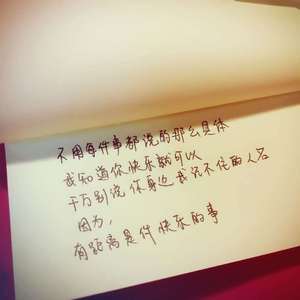 不用每件事都说的那么具体
我知道你快乐就可以
千万别说你身边我记不住的人名
因为,
有距离是件快乐的事